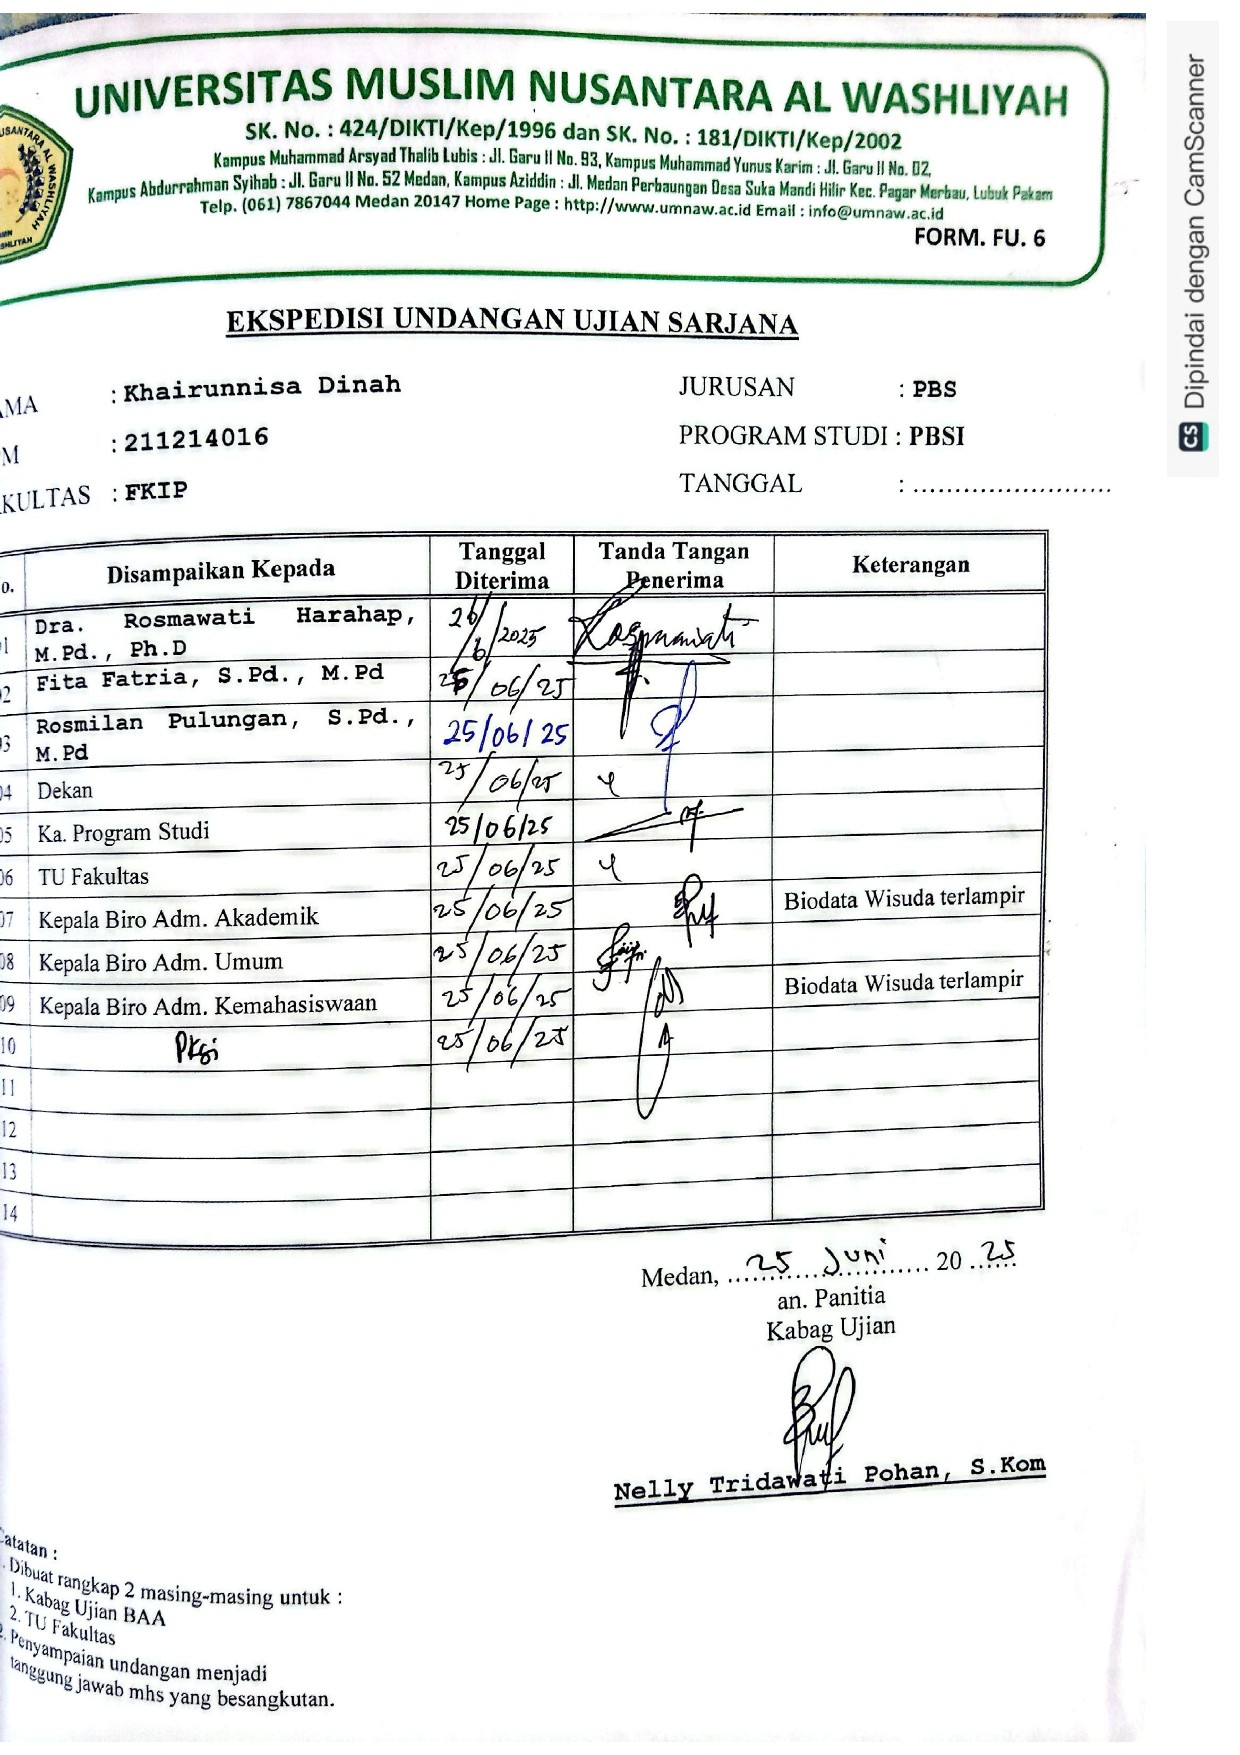 UNIVERSITAS MUSLIM NUSANTARA AL WASHLIYAH
SK. No. : 424/DIKTI/Kep/1996 dan SK. No. : 181/DIKTI/Kep/2002
Kampus Muhammad Arsyad Thalib Lubis : Jl. Garu II No. 93, Kampus Muhammad Yunus Karim : Jl. Garu II No. 02,
Kampus Abdurrahman Syihab : Jl. Garu II No. 52 Medan, Kampus Aziddin : Jl. Medan Perbaungan Desa Suka Mandi Hilir Kec. Pagar Merbau, Lubuk Pakam
Telp. (061) 7867044 Medan 20147 Home Page : http://www.umnaw.ac.id Email : info@umnaw.ac.id
FORM. FU. 6
USANTARA AL WASHLIYAH
EKSPEDISI UNDANGAN UJIAN SARJANA
AMA : Khairunnisa Dinah JURUSAN : PBS
M : 211214016 PROGRAM STUDI : PBSI
KULTAS : FKIP TANGGAL : ........................
o. Disampaikan Kepada Tanggal Diterima Tanda Tangan Penerima Keterangan
1 Dra. Rosmawati Harahap, M.Pd., Ph.D 26/6/2025 Rosmawati
2 Fita Fatria, S.Pd., M.Pd 25/06/25
03 Rosmilan Pulungan, S.Pd., M.Pd 25/06/25
04 Dekan 25/06/25
05 Ka. Program Studi 25/06/25
06 TU Fakultas 25/06/25
07 Kepala Biro Adm. Akademik 25/06/25 Biodata Wisuda terlampir
08 Kepala Biro Adm. Umum 25/06/25
09 Kepala Biro Adm. Kemahasiswaan 25/06/25 Biodata Wisuda terlampir
10 Pksi 25/06/25
11
12
13
14
Medan, 25 Juni 20 25
an. Panitia
Kabag Ujian
Nelly Tridawati Pohan, S.Kom
Catatan :
. Dibuat rangkap 2 masing-masing untuk :
1. Kabag Ujian BAA
2. TU Fakultas
2. Penyampaian undangan menjadi
tanggung jawab mhs yang besangkutan.
CS Dipindai dengan CamScanner